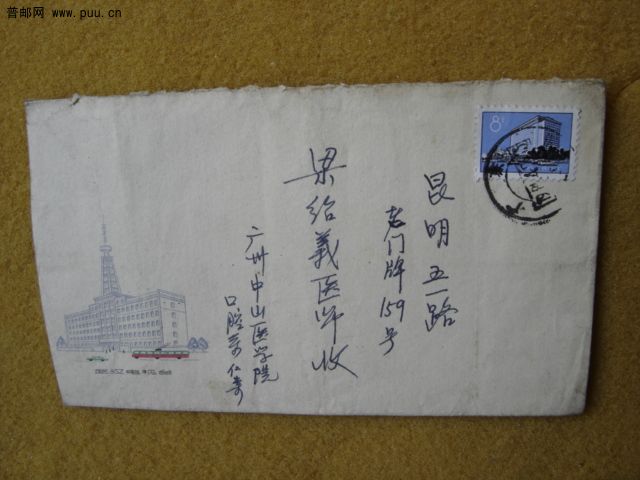 普邮网 www.puu.cn
8分
昆明五一路
老门牌159号
梁绍義医师收
广州中山医学院
口腔